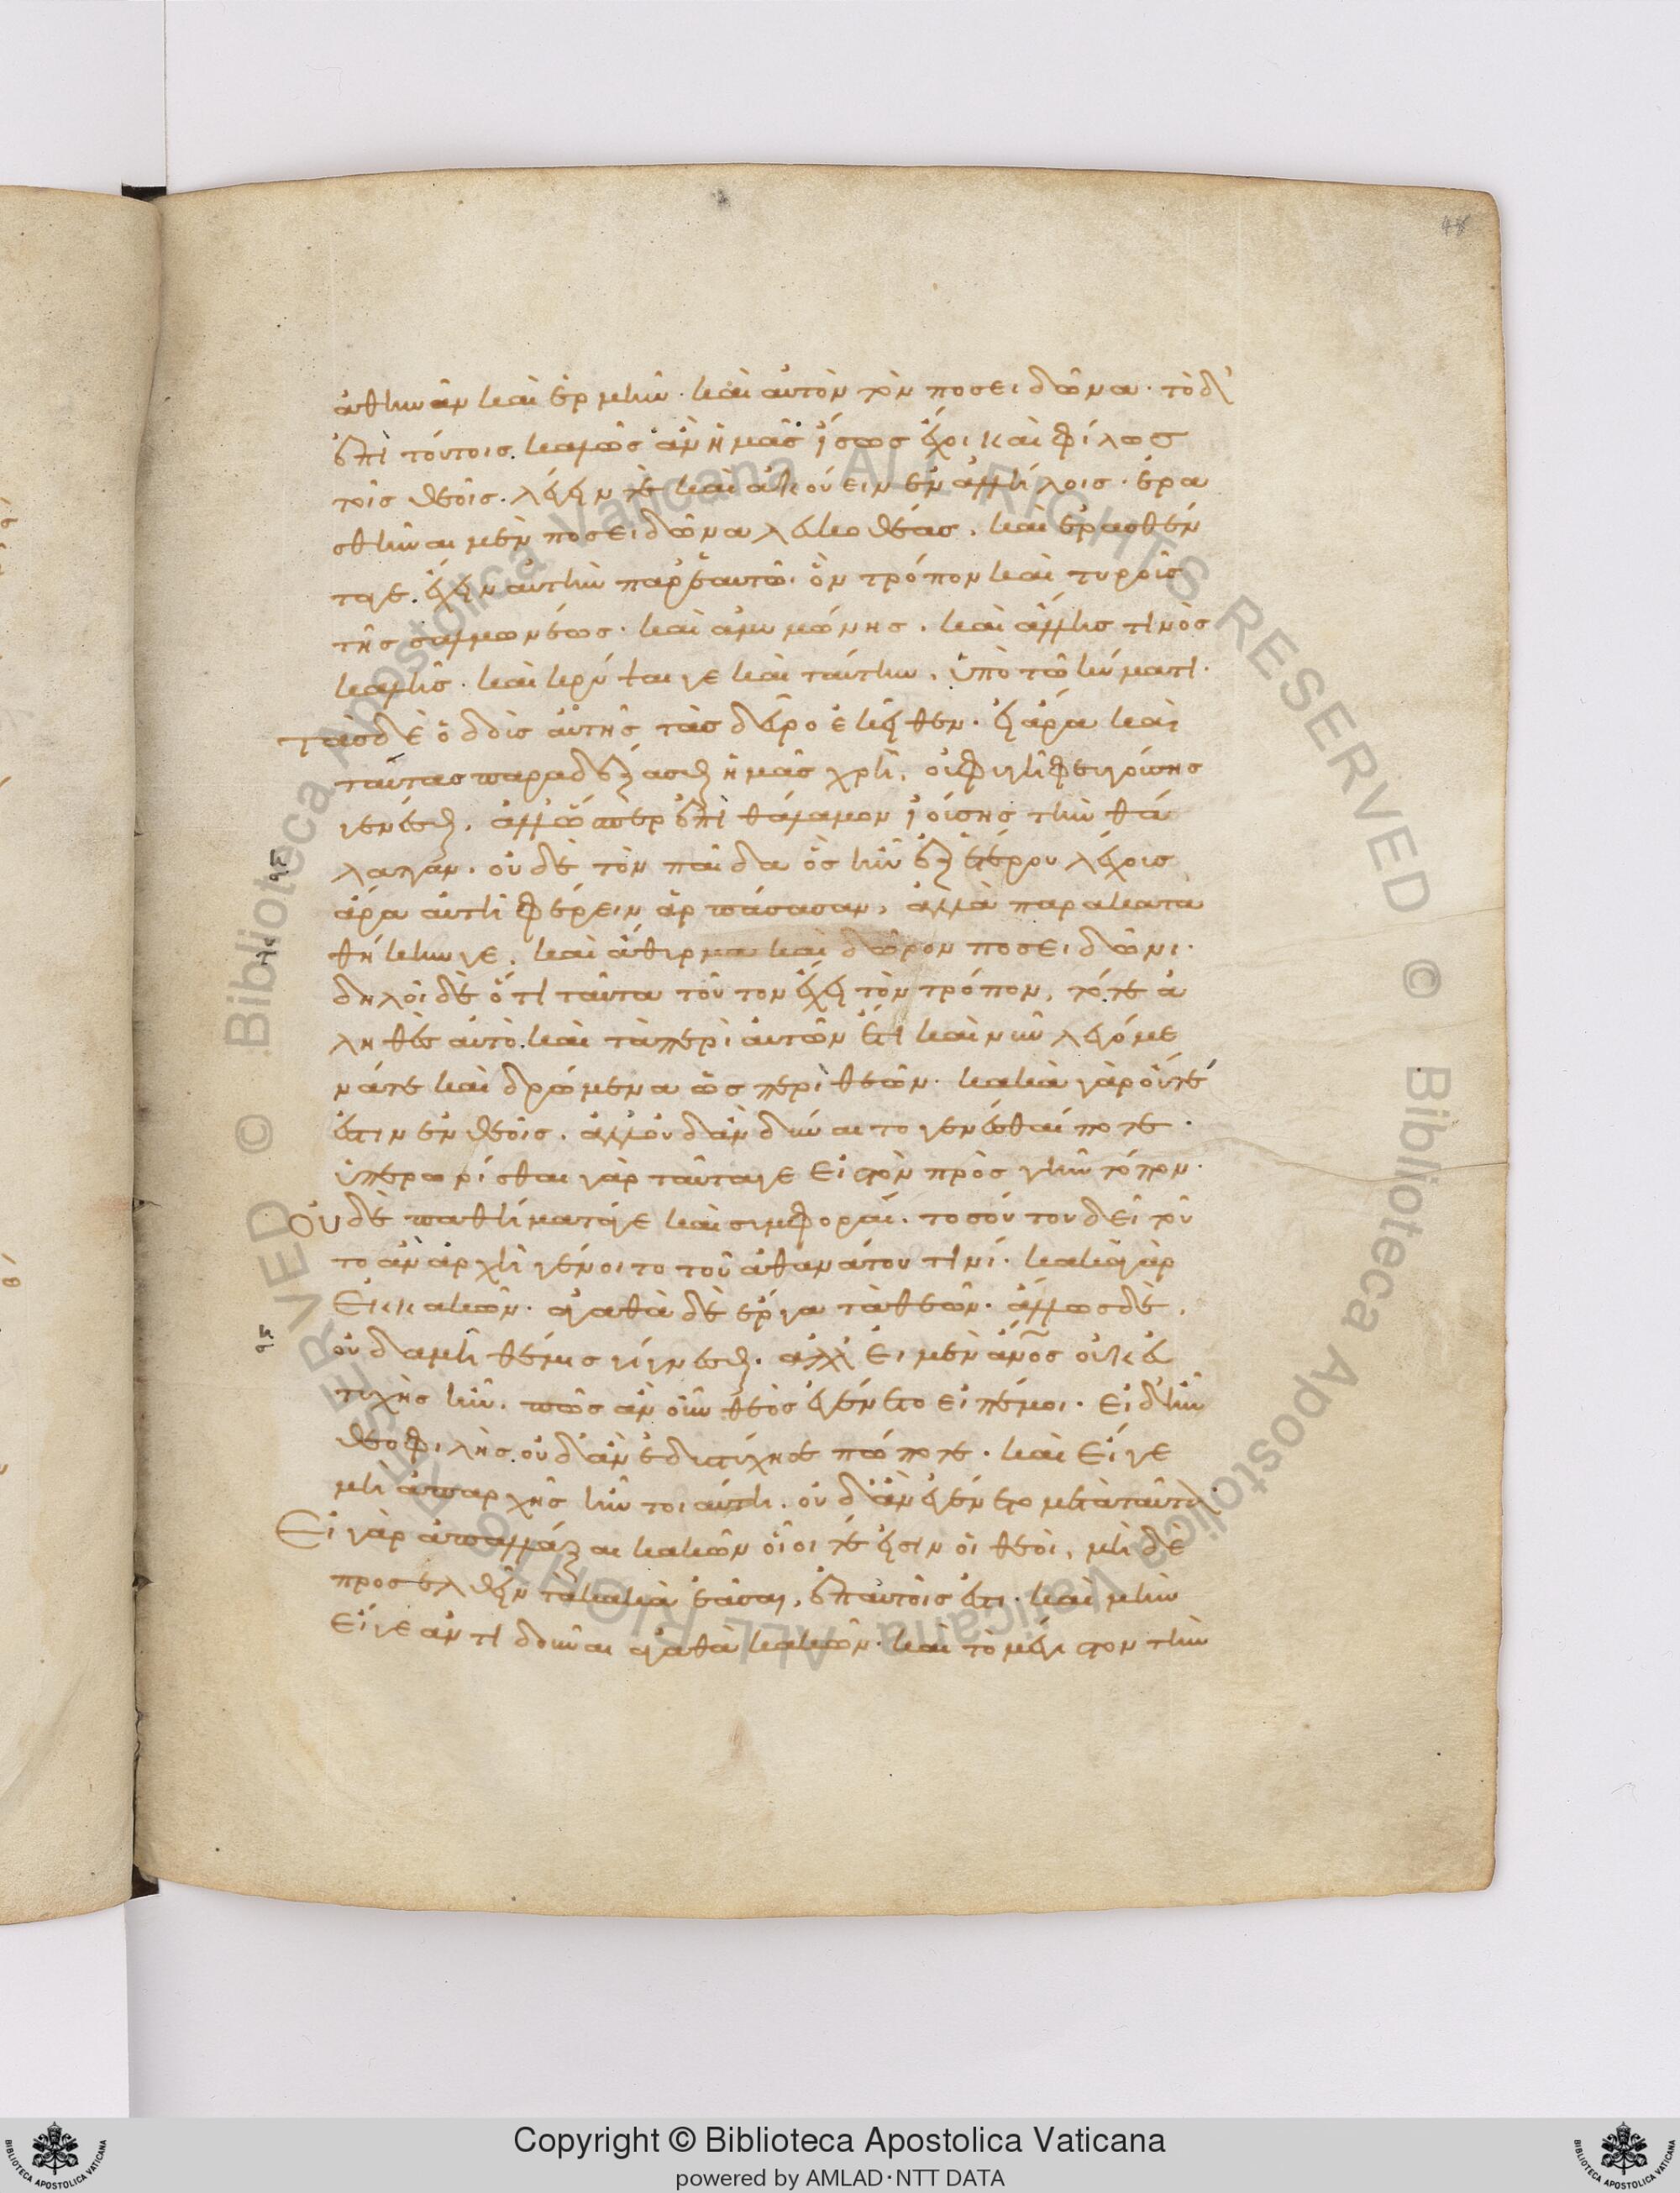 48
ἀθηνᾶν καὶ ἑρμῆν· καὶ αὐτὸν τὸν ποσειδῶνα· τὸ δ'
ἐπὶ τούτοις. καλῶς ἂν ἡμᾶς ἴσως ἔχοι καὶ φίλως
τοῖς θεοῖς. λέγειν τὲ καὶ ἀκούειν ἐν ἀλλήλοις· ἐρα
σθῆναι μὲν ποσειδῶνα λευκοθέας, καὶ ἐρασθέν
τα γε. ἔχειν αὐτὴν παρ' ἑαυτῶ. ὃν τρόπον καὶ τυροῦς
τῆς σαλμωνέως· καὶ ἀμυμώνης. καὶ ἄλλης τινὸς
καλῆς. καὶ κρύψαι γε καὶ ταύτην. ὑπὸ τῶ κύματι·
τὰς δὲ ὁδοὺς αὐτῆς τὰς δεῦρο κἀκεῖθεν.
ταύτας παραδέξασθαι ἡμᾶς χρὴ, οὐ φυγῇ φευγούσης
γενέσθαι. ἀλλ' ὥσπερ ἐπὶ θάλαμον ἰούσης τὴν θά
λατταν. οὐδὲ τὸν παῖδα ὃς ἦν ἐξ ἑτέρου λέχους
ἄρα αὐτὴ φέρειν ἁρπάσασαν, ἀλλὰ παρακατα
θήκην γε. καὶ ἄθυρμα καὶ δῶρον ποσειδῶνι·
δηλοῖ δὲ ὅτι ταῦτα τοῦτον ἔχει τὸν τρόπον, τό, τε ἀ
ληθὲς αὐτὸ. καὶ τὰ περὶ αὐτῶν ἔτι καὶ νῦν λεγόμε
νά τε καὶ δρώμενα ὡς περὶ θεῶν. κακὰ γὰρ οὔτέ
ἐστιν ἐν θεοῖς. ἀλλ' οὐδ' ἂν δύναιτο γενέσθαί ποτε·
ὑπερωρίσθαι γὰρ ταῦτά γε εἰς τὸν πρὸς γῆν τόπον·
Οὐδὲ παθήματά γε καὶ συμφοραί. τοσούτου δεῖ τοῦ
το ἂν ἀρχὴ γένοιτο τοῦ ἀθανάτου τινί. κακὰ γὰρ
ἐκ κακῶν· ἀγαθὰ δὲ ἔργα τὰ θεῶν. ἄλλως δὲ.
οὐδαμῆ θέμις γίγνεσθαι. ἀλλ' εἰ μὲν ἄνος οὐκ εὐ
τυχὴς ἦν. πῶς ἂν οὖν θεὸς ἐγένετο εἰπέ μοι. εἰ δ' ἦν
θεοφιλὴς. οὐδ' ἂν ἐδυστύχησέ πώποτε. καὶ εἴ γε
μὴ ἀπαρχῆς ἦν τοιαύτη. οὐδ' ἂν ἐγένετο μετὰ ταῦτα·
Εἰ γὰρ ἀπαλλάξαι κακῶν οἷοί τέ εἰσιν οἱ θεοὶ, μὴ δὲ
προσελθεῖν τὰ κακὰ ἐᾶσαι, ἐπ' αὐτοῖς ἐστι. καὶ μὴν
εἴ γε ἀντιδοῦναι ἀγαθὰ κακῶν. καὶ τὸ μέγιστον τὴν
Biblioteca Apostolica Vaticana ALL RIGHTS RESERVED ©
Copyright © Biblioteca Apostolica Vaticana
powered by AMLAD·NTT DATA